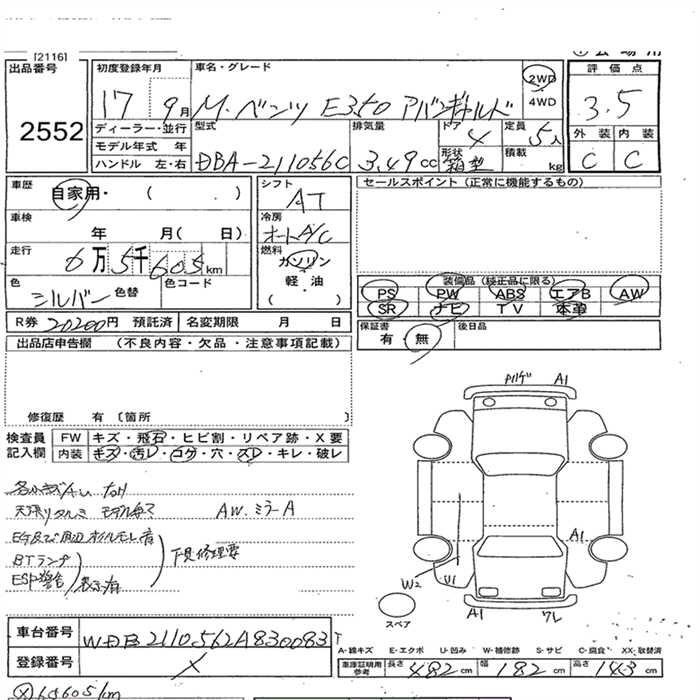 [2116]
出品番号
2552
初度登録年月
17 9月
車名・グレード
M.ベンツ E350 アバンギャルド
2WD
4WD
評価点
3.5
外装 内装
C C
ディーラー・並行
モデル年式 年
ハンドル 左・右
型式
DBA-211056C
排気量
3.49cc
ドア
4
形状
箱型
定員
5人
積載
kg
車歴
自家用・ ( )
車検
年 月( 日)
走行
6万5千605km
色
シルバー
色替
色コード
シフト
AT
冷房
オートA/C
燃料
ガソリン
軽・油
( )
セールスポイント (正常に機能するもの)
装備品 (純正品に限る)
PS PW ABS エアB AW
SR ナビ TV 本革
R券 20200円 預託済
名変期限 月 日
保証書
有・無
後日品
出品店申告欄 (不良内容・欠品・注意事項記載)
修復歴 有 〔箇所
検査員
記入欄
FW キズ・飛石・ヒビ割・リペア跡・X要
内装 キズ・汚レ・コゲ・穴・スレ・キレ・破レ
天張りタルミ
AW.ミラーA
BTランプ
ESP警告
表示有
下見修理要
ハゲ A1
A1
W2
U1
A1
スペア
車台番号
WDB2110562A830083T
登録番号
A-線キズ E-エクボ U-凹み W-補修跡 S-サビ C-腐食 XX-取替済
車庫証明用
参考
長さ 482cm 幅 182cm 高さ 143cm
65605km